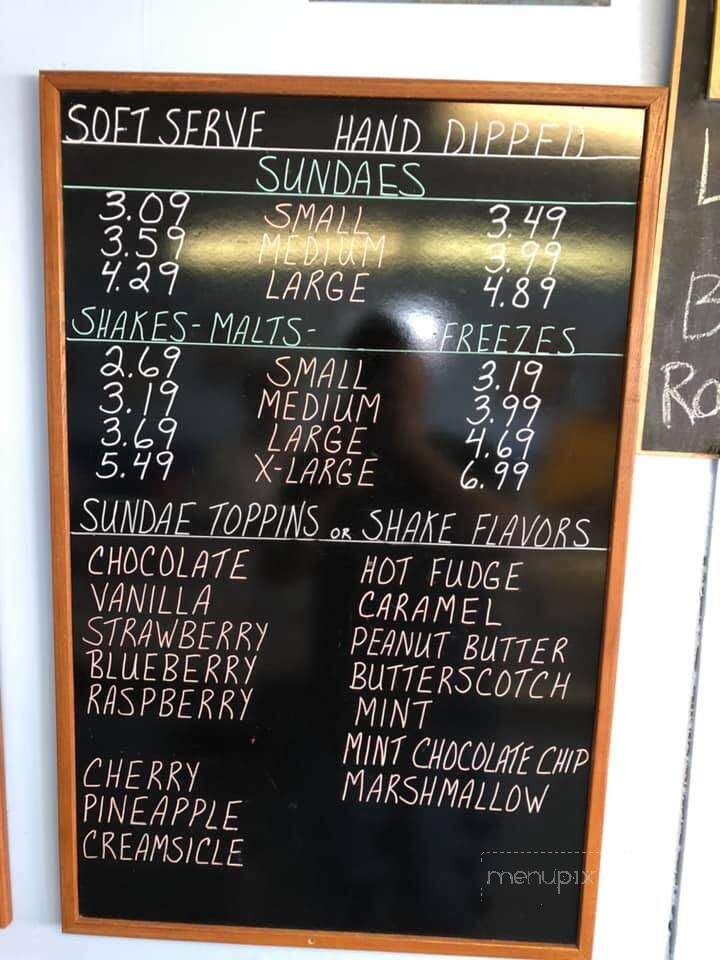 SOFT SERVE HAND DIPPED
SUNDAES
3.09 SMALL 3.49
3.59 MEDIUM 3.99
4.29 LARGE 4.89
SHAKES- MALTS- FREEZES
2.69 SMALL 3.19
3.19 MEDIUM 3.99
3.69 LARGE 4.69
5.49 X-LARGE 6.99
SUNDAE TOPPINS OR SHAKE FLAVORS
CHOCOLATE HOT FUDGE
VANILLA CARAMEL
STRAWBERRY PEANUT BUTTER
BLUEBERRY BUTTERSCOTCH
RASPBERRY MINT
MINT CHOCOLATE CHIP
CHERRY MARSHMALLOW
PINEAPPLE
CREAMSICLE
menupix